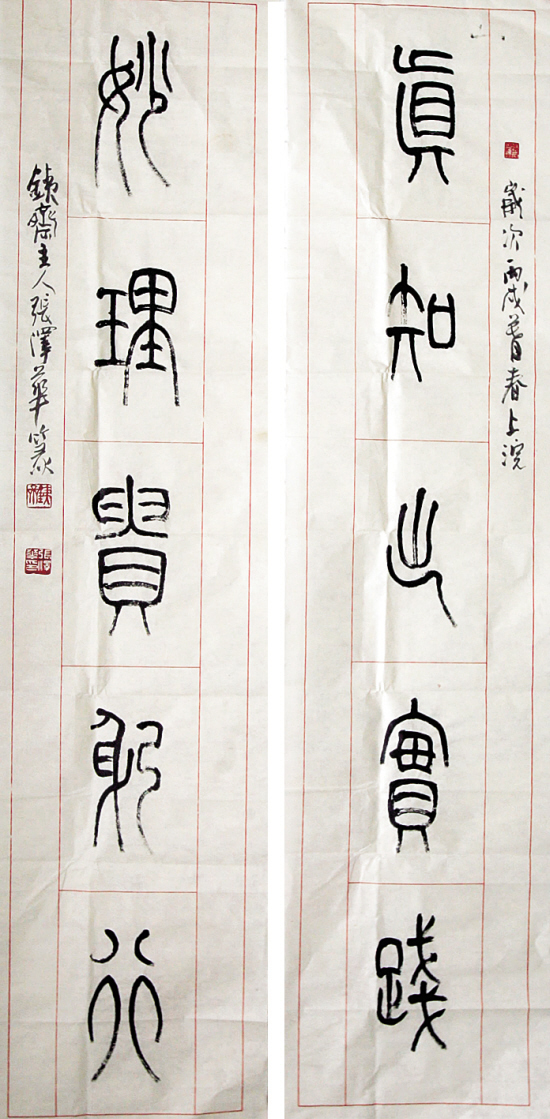 歲次丙戌暮春上浣
眞知出實踐
妙理貴躬行
銕齋主人張澤華篆